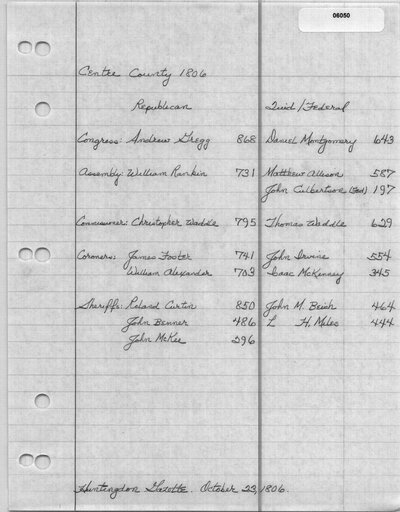 06050
Centre County 1806
Republican Quid/Federal
Congress: Andrew Gregg 868 Daniel Montgomery 643
Assembly: William Rankin 731 Matthew Allison 587
John Culbertson (Fed) 197
Commissioner: Christopher Waddle 795 Thomas Waddle 629
Coroners: James Foster 741 John Irvine 554
William Alexander 703 Isaac McKenney 345
Sheriffs: Roland Curtin 850 John M. Beich 464
John Benner 486 L H. Miles 444
John McKee 296
Huntingdon Gazette. October 23, 1806.